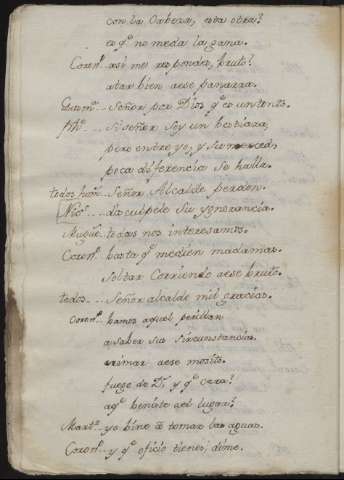 con la Cabeza, esta otra?
es q.e no meda la gana.
Coron.l asi me respondes, bruto?
atar bien aese panarra.
Señor por Dios q.e es un tonto.
Si señor Soy un bestiaza,
pero entre yo, y su merced,
poca diferencia se halla.
todos Señor Alcalde perdon.
disculpele su ygnorancia.
todas nos interesamos.
Coron.l basta q.e medien madamas.
Soltar Corriendo aese bruto.
todos. Señor alcalde mil gracias.
Coron.l bamos aquel perillan
a saber sus circunstancias.
arrimar aese mosito.
fuego de D.s y q.e cara!
aq.e beniste ael lugar?
Mart.n yo bine a tomar las aguas.
Coron.l y q.e oficio tienes, dime.